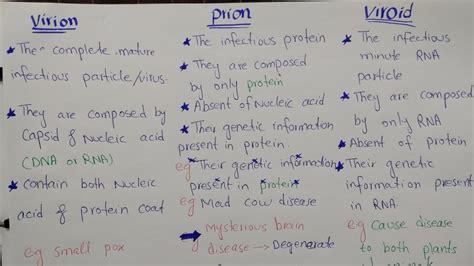 Virion
* The complete mature
infectious particle/virus.
* They are composed by
Capsid & Nucleic acid
(DNA or RNA)
* contain both Nucleic
acid & protein coat
eg small pox
prion
* The infectious protein
* They are composed
by only protein
* Absent of Nucleic acid
* Their genetic information
present in protein.
eg Their genetic information
present in protein
eg Mad cow disease
→ Mysterious brain
disease → Degenerate
Viroid
* The infectious
minute RNA
particle
* They are composed
by only RNA
* Absent of protein
* Their genetic
information present
in RNA
eg Cause disease
to both plants